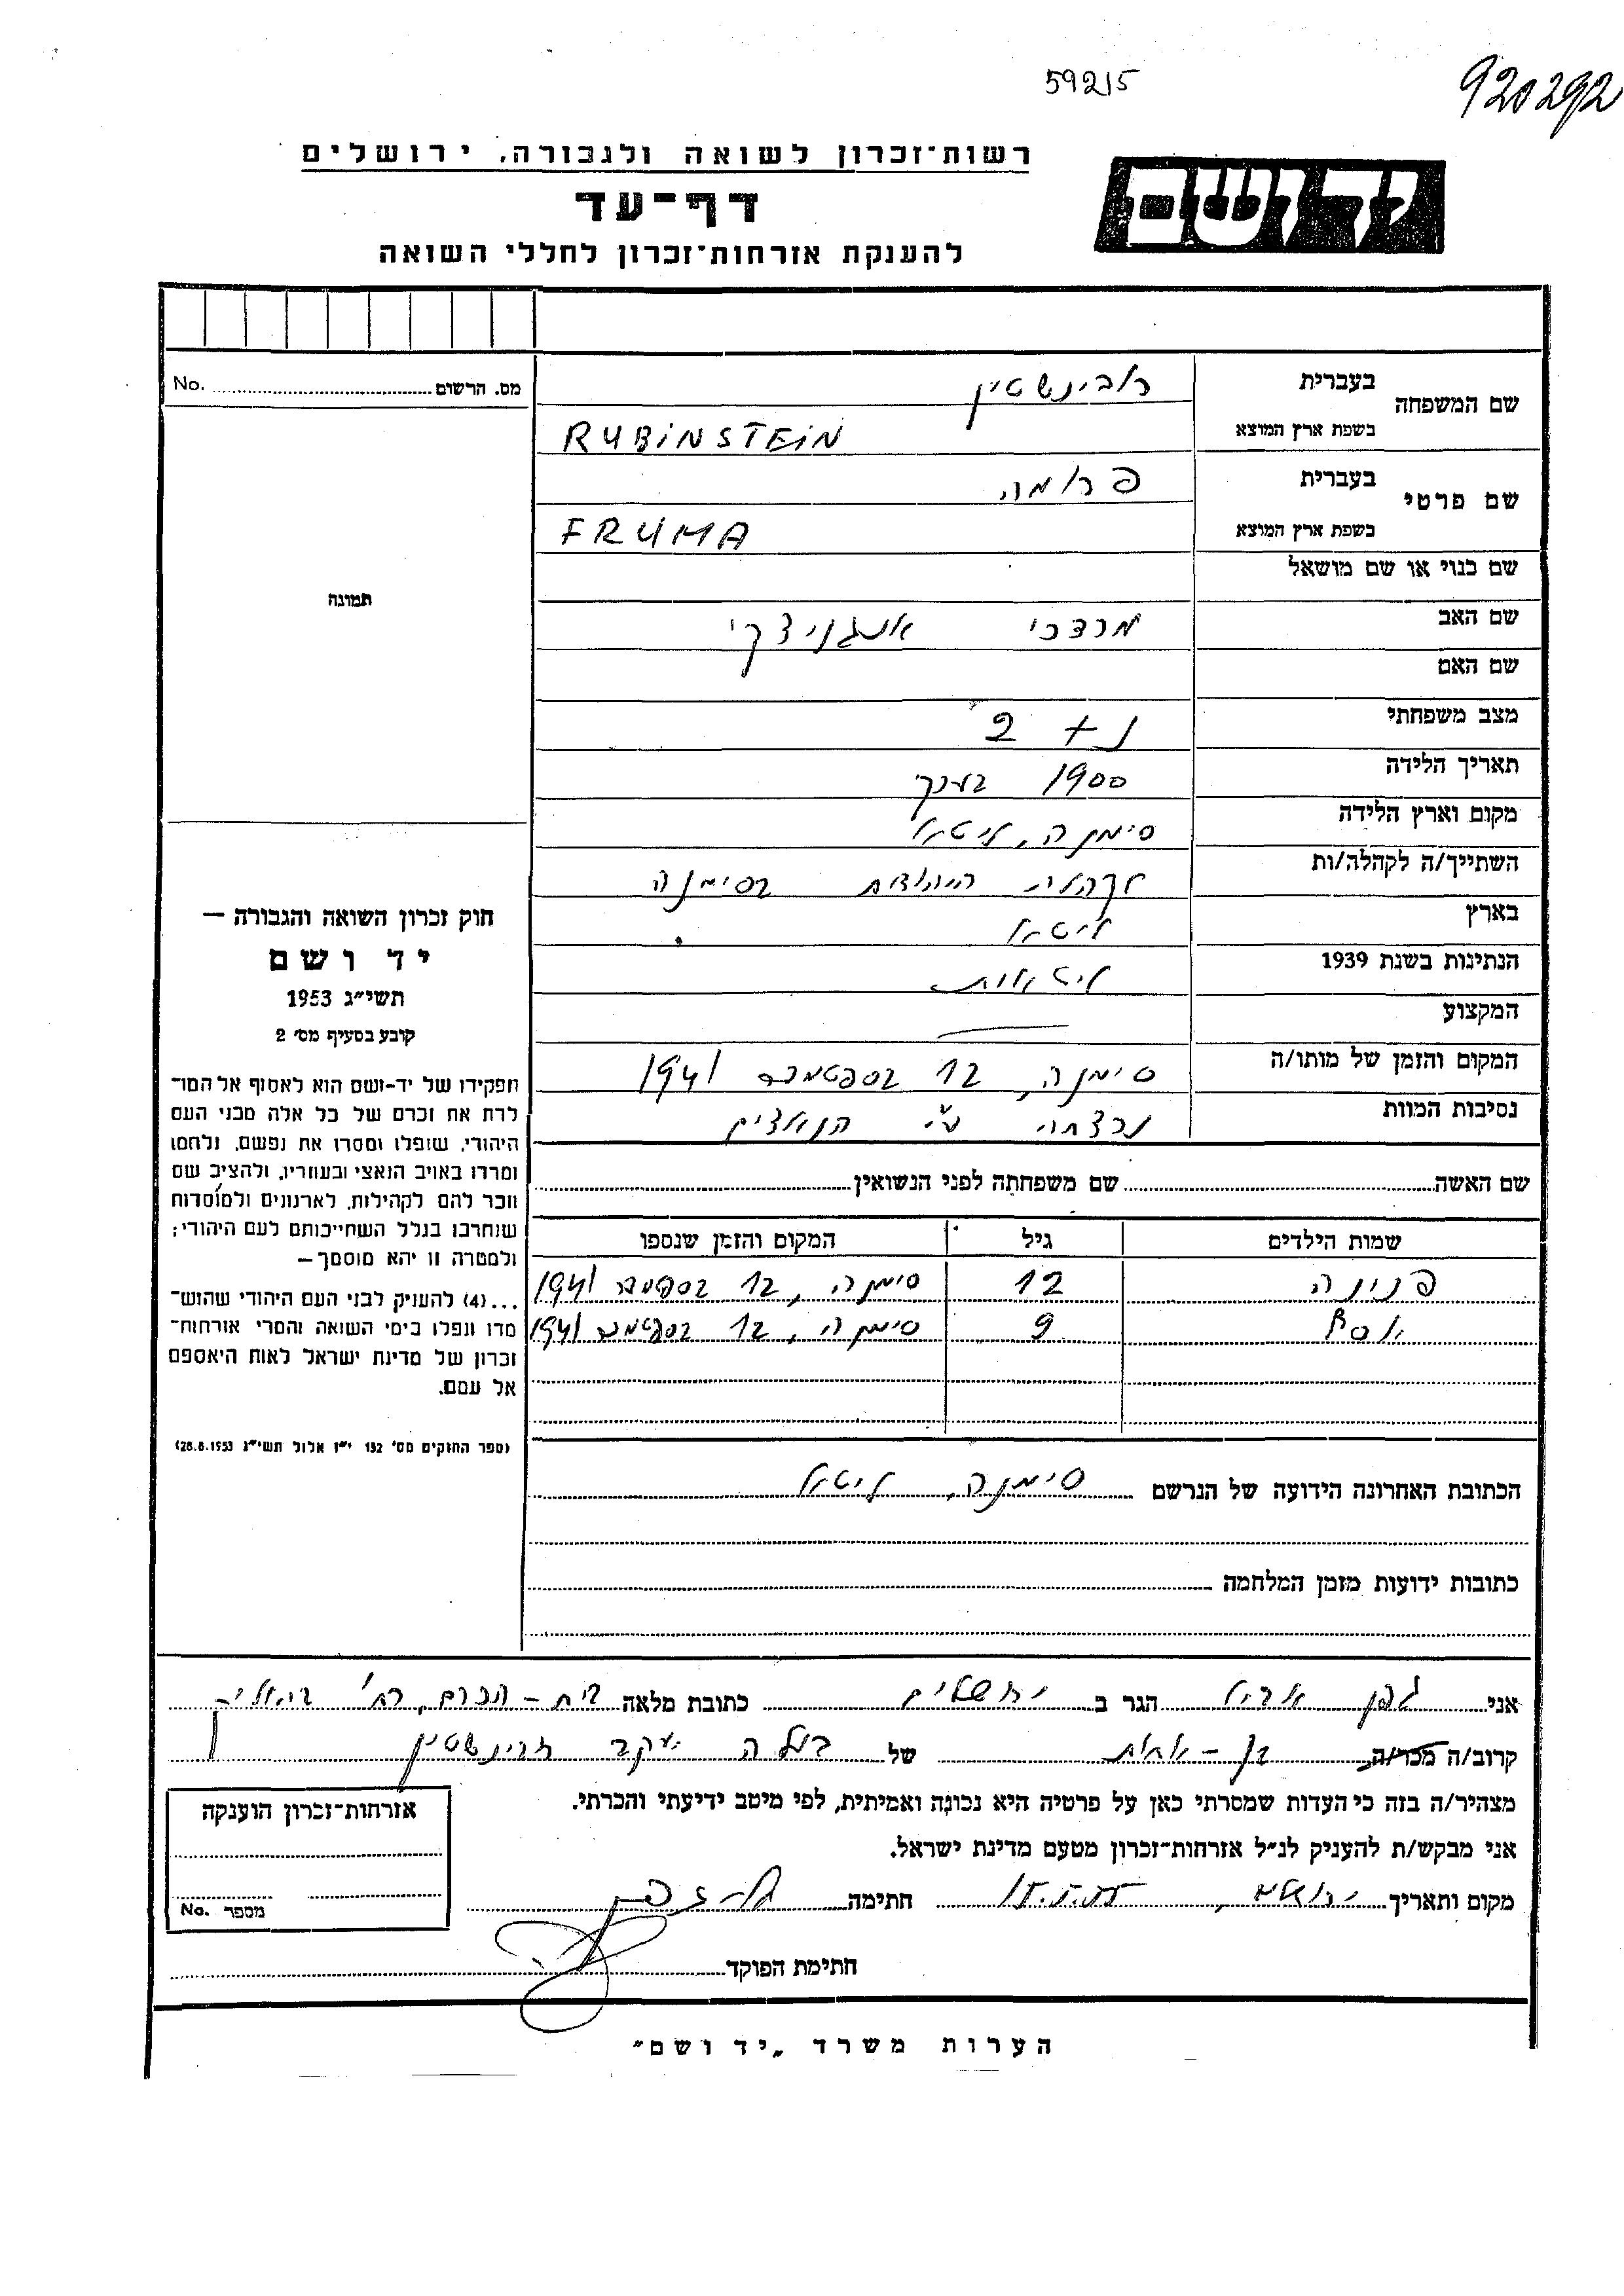 59215
920292
יד ושם
רשות־זכרון לשואה ולגבורה, ירושלים
דף־עד
להענקת אזרחות־זכרון לחללי השואה
מס. הרשום No.
תמונה
שם המשפחה
בעברית רובינשטיין
בשפת ארץ המוצא RUBINSTEIN
שם פרטי
בעברית פרומה
בשפת ארץ המוצא FRUMA
שם כנוי או שם מושאל
שם האב מרדכי
שם האם
מצב משפחתי נ + 2
תאריך הלידה 1900 בערך
מקום וארץ הלידה סימנה, ליטא
השתייך/ה לקהלה/ות היהודית בסימנה
בארץ ליטא
הנתינות בשנת 1939 ליטאית
המקצוע
המקום והזמן של מותו/ה סימנה, 12 בספטמבר 1941
נסיבות המוות נרצחה ע"י הנאצים
חוק זכרון השואה והגבורה –
יד ושם
תשי״ג 1953
קובע בסעיף מס׳ 2
תפקידו של יד-ושם הוא לאסוף אל המו־
לדת את זכרם של כל אלה מבני העם
היהודי, שנפלו ומסרו את נפשם, נלחמו
ומרדו באויב הנאצי ובעוזריו, ולהציב שם
וזכר להם לקהילות, לארגונים ולמוסדות
שנחרבו בגלל השתייכותם לעם היהודי;
ולמטרה זו יהא מוסמך –
...(4) להעניק לבני העם היהודי שהוש־
מדו ונפלו בימי השואה והמרי אזרחות־
זכרון של מדינת ישראל לאות היאספם
אל עמם.
(ספר החוקים מס׳ 132 י״ז אלול תשי״ג 28.8.1953)
שם האשה שם משפחתה לפני הנשואין
שמות הילדים גיל המקום והזמן שנספו
פנינה 12 סימנה, 12 בספטמבר 1941
יוסף 9 סימנה, 12 בספטמבר 1941
הכתובת האחרונה הידועה של הנרשם סימנה, ליטא
כתובות ידועות מזמן המלחמה
אני גפן הגר ב ירושלים כתובת מלאה בית-הכרם, רח'
קרוב/ה מכר/ה בן-אחות של יעקב רובינשטיין
מצהיר/ה בזה כי העדות שמסרתי כאן על פרטיה היא נכונה ואמיתית, לפי מיטב ידיעתי והכרתי.
אני מבקש/ת להעניק לנ״ל אזרחות־זכרון מטעם מדינת ישראל.
מקום ותאריך ירושלים, חתימה
חתימת הפוקד
אזרחות־זכרון הוענקה
מספר No.
הערות משרד „יד ושם״